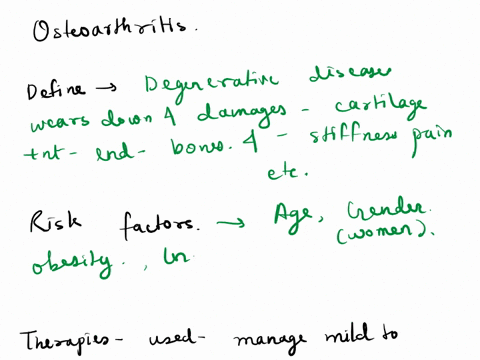 Osteoarthritis.
Define → Degenerative disease
wears down & damages - cartilage
tnt - end - bones. & - stiffness pain
etc.
Risk factors. → Age, Gender
(women).
obesity. , In
Therapies - used - manage mild to